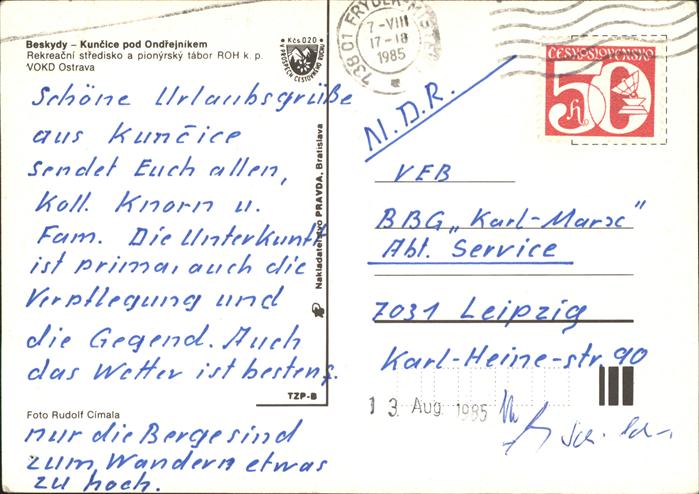 Beskydy – Kunčice pod Ondřejníkem
Rekreační středisko a pionýrský tábor ROH k. p.
VOKD Ostrava
Kčs 0,20
V PROSPĚCH CESTOVNÉHO RUCHU
Schöne Urlaubsgrüße
aus Kunčice
sendet Euch allen,
Koll. Knorn u.
Fam. Die Unterkunft
ist prima, auch die
Verpflegung und
die Gegend. Auch
das Wetter ist bestens,
Foto Rudolf Címala
nur die Berge sind
zum Wandern etwas
zu hoch.
Nakladateľstvo PRAVDA, Bratislava
TZP-B
738 01 FRÝDEK
7-VIII
17-18
1985
ČESKOSLOVENSKO
50 h
N.D.R.
VEB
BBG „Karl-Marx"
Abt. Service
7031 Leipzig
Karl-Heine-str. 90
13 Aug 1985